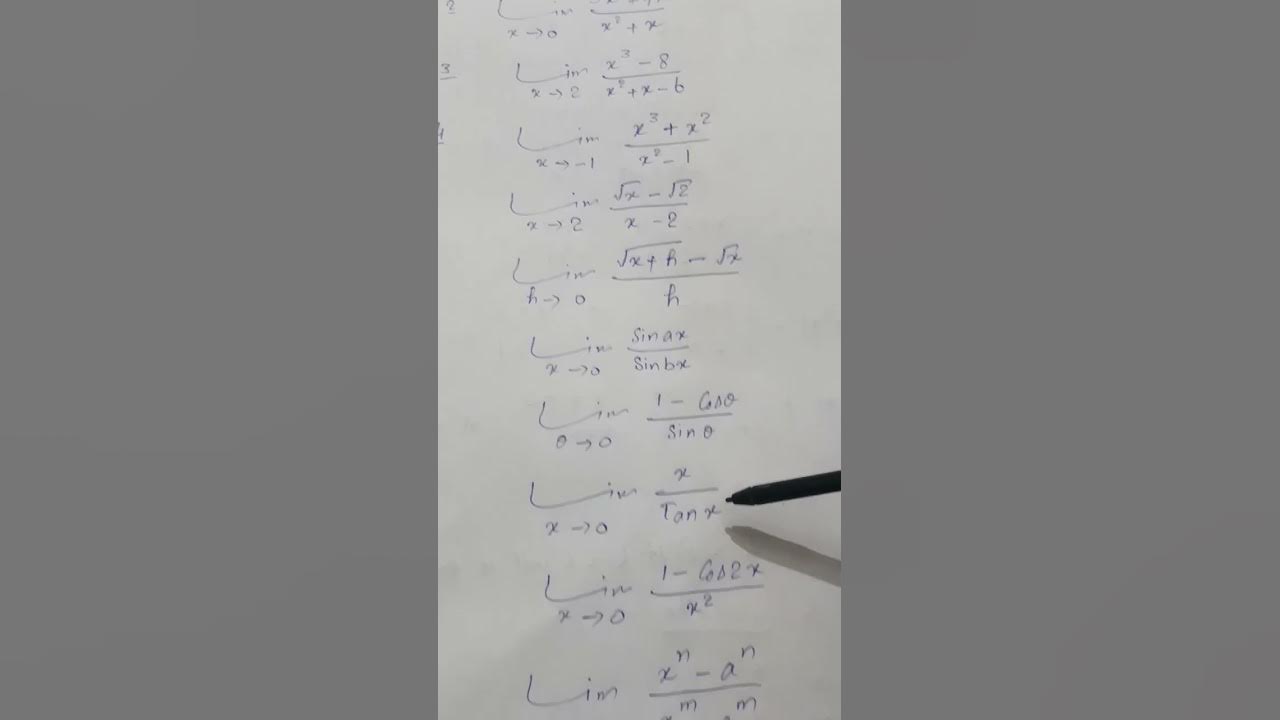 2 Lim x→0 / x² + x
3 Lim x→2 x³ - 8 / x² + x - 6
4 Lim x→-1 x³ + x² / x² - 1
Lim x→2 √x - √2 / x - 2
Lim h→0 √x+h - √x / h
Lim x→0 Sin ax / Sin bx
Lim θ→0 1 - Cos θ / Sin θ
Lim x→0 x / Tan x
Lim x→0 1 - Cos 2x / x²
Lim xⁿ - aⁿ / xᵐ - aᵐ